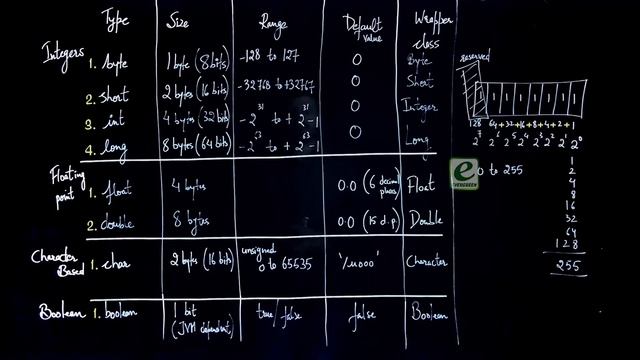 Type Size Range Default value Wrapper class
Integers
1. byte 1 byte (8 bits) -128 to 127 0 Byte
2. short 2 bytes (16 bits) -32768 to +32767 0 Short
3. int 4 bytes (32 bits) -2^31 to +2^31-1 0 Integer
4. long 8 bytes (64 bits) -2^63 to +2^63-1 0 Long
Floating point
1. float 4 bytes 0.0 (6 decimal places) Float
2. double 8 bytes 0.0 (15 d.p) Double
Character Based
1. char 2 bytes (16 bits) unsigned 0 to 65535 '/u000' Character
Boolean 1. boolean 1 bit (JVM dependent) true/false false Boolean
reserved
1 1 1 1 1 1 1 1
128 64+32+16+8+4+2+1
2^7 2^6 2^5 2^4 2^3 2^2 2^1 2^0
e
EVERGREEN
0 to 255
1
2
4
8
16
32
64
128
255